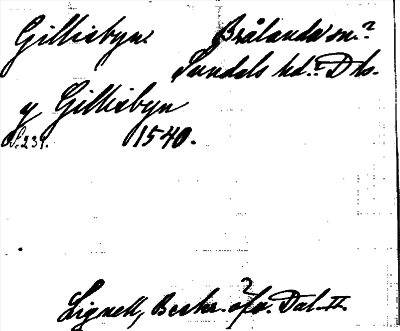 Gillisbyn. Brålanda sn.?
Sundals hd.? Dls.
y Gillisbyn
S. 239. 1540.
Lignell, Beskr. öfv. Dal. II.